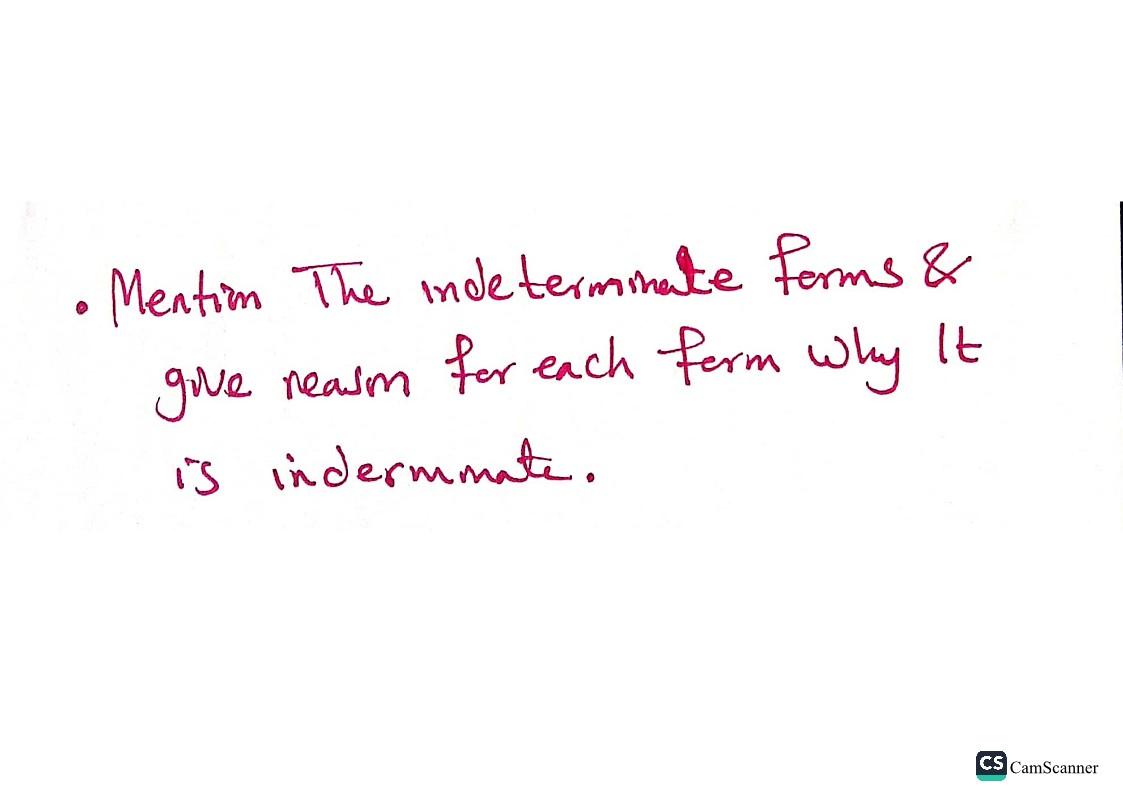 • Mention The indeterminate forms &
give reason for each form why It
is inderminate.
CS CamScanner